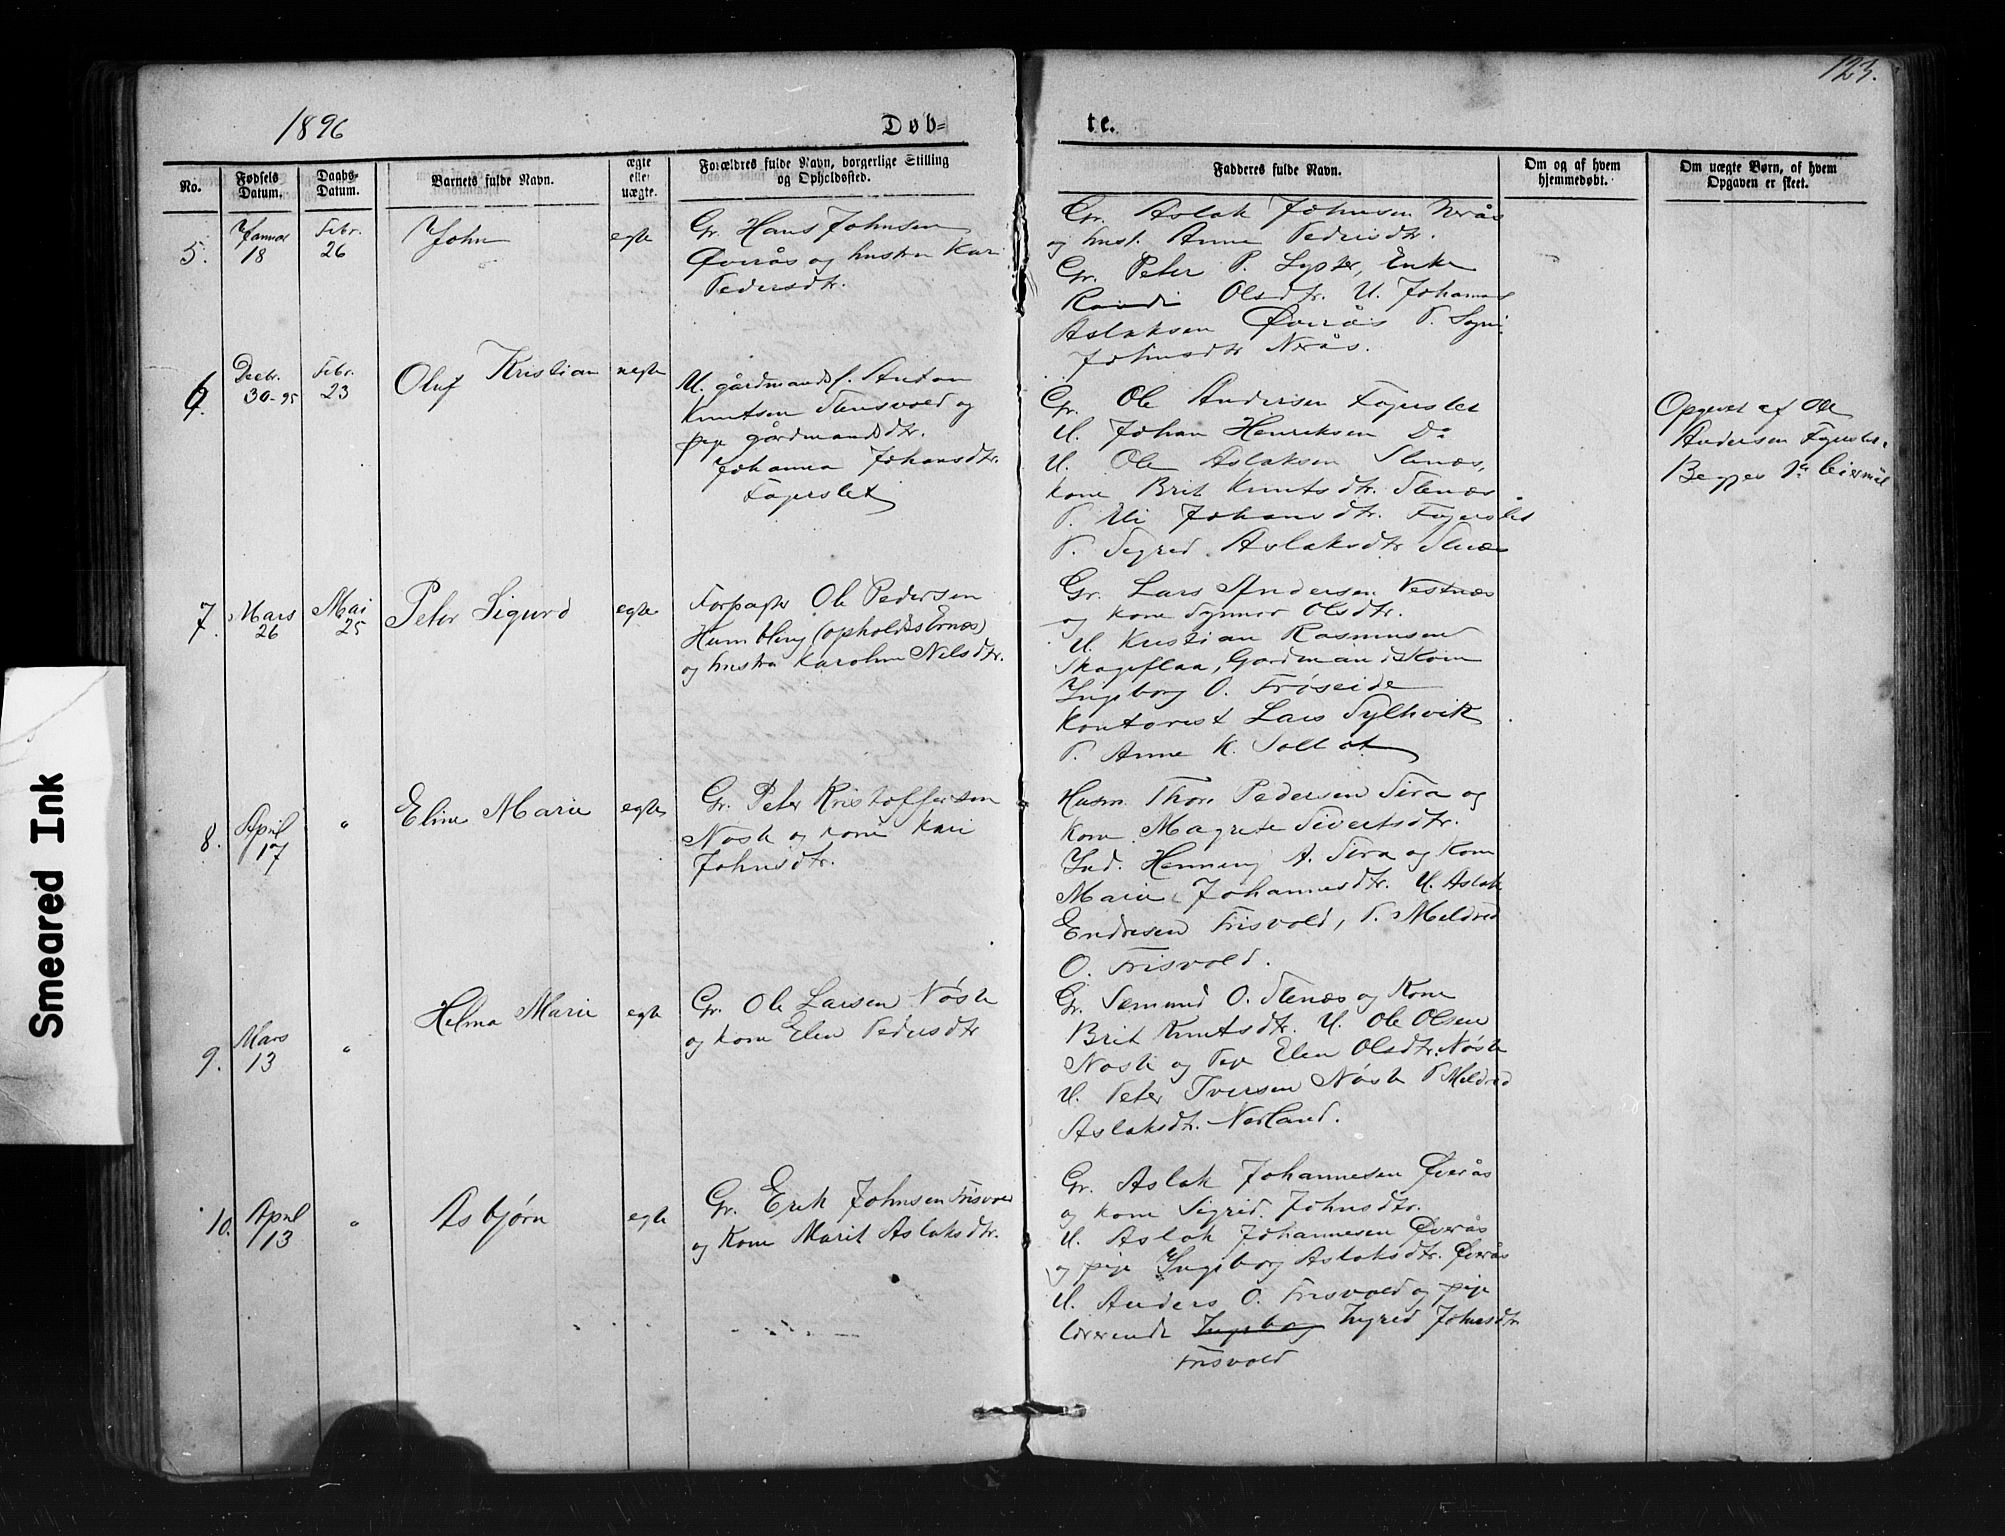 123.
1896
Døb-
te.
No.
Fødsels Datum.
Daabs- Datum.
Barnets fulde Navn.
ægte eller uægte.
Forældres fulde Navn, borgerlige Stilling og Opholdssted.
Fadderes fulde Navn.
Om og af hvem hjemmedøbt.
Om uægte Børn, af hvem Opgaven er skeet.
5.
Januar 18
Febr. 26
John
egte
Gr. Hans Johnsen
Øverås og hustru Kari
Pedersdtr.
Gr. Aslak Johnsen Nerås
og hust. Anne Pedersdtr.
Gr. Peter P. Syster, Enke
Randi Olsdtr. U. Johannes
Aslaksen Øverås P.
Johnsdtr Nerås.
6.
Decbr. 30-95
Febr. 23
Oluf Kristian
uegte
U. gårdmands. Anton
Knutsen Stensvold og
pige gårdmandsdtr.
Johanna Johansdtr.
Fagerslet
Gr. Ole Andersen Fagerslet
U. Johan Henriksen Do
U. Ole Aslaksen Stenæs,
kone Brit Knutsdtr. Stenæs
P. Johansdtr. Fagerslet
P. Sigrid Aslaksdtr Stenæs
Opgivet af Ole
Andersen Fagerslet.
Begges 1ste leiermål
7.
Mars 26
Mai 25
Peter Sigurd
egte
Forpagter Ole Pedersen
Humbling (opholdssErnæs)
og hustru Karoline Nilsdtr.
Gr. Lars Andersen Vestnæs
og kone Synnøv Olsdtr.
U. Kristian Rasmussen
Skageflaa, Gardmandskone
Ingeborg O. Frøseide
Kontorist Lars Sylhvik
P. Anne K. Toltot
8.
April 17
"
Eline Marie
egte
Gr. Peter Kristoffersen
Nøste og kone Kari
Johnsdtr.
Husm. Thore Pedersen Sira og
kone Magrete Sivertsdtr.
Ind. Henning A. Sira og kone
Marie Johannesdtr. U. Aslak
Endresen Frisvold, P. Meldred
O. Frisvold.
9.
Mars 13
"
Helma Marie
egte
Gr. Ole Larsen Nøste
og kone Elen Pedersdtr
Gr. Sæmund O. Stenæs og kone
Brit Knutsdtr. U. Ole Olsen
Nøste og Pige Elen Olsdtr. Nøste
U. Peter Iversen Nøste P Meldred
Aslaksdtr. Nerland.
10.
April 13
"
Asbjørn
egte
Gr. Erik Johnsen Frisvold
og kone Marit Aslaksdtr.
Gr. Aslak Johannesen Øverås
og kone Sigrid Johnsdtr.
U. Aslak Johannesen Øverås
og pige Ingeborg Aslaksdtr. Øverås
U. Anders O. Frisvold og pige
lærerinde Ingeborg Ingrid Johnsdtr.
Frisvold
Smeared Ink